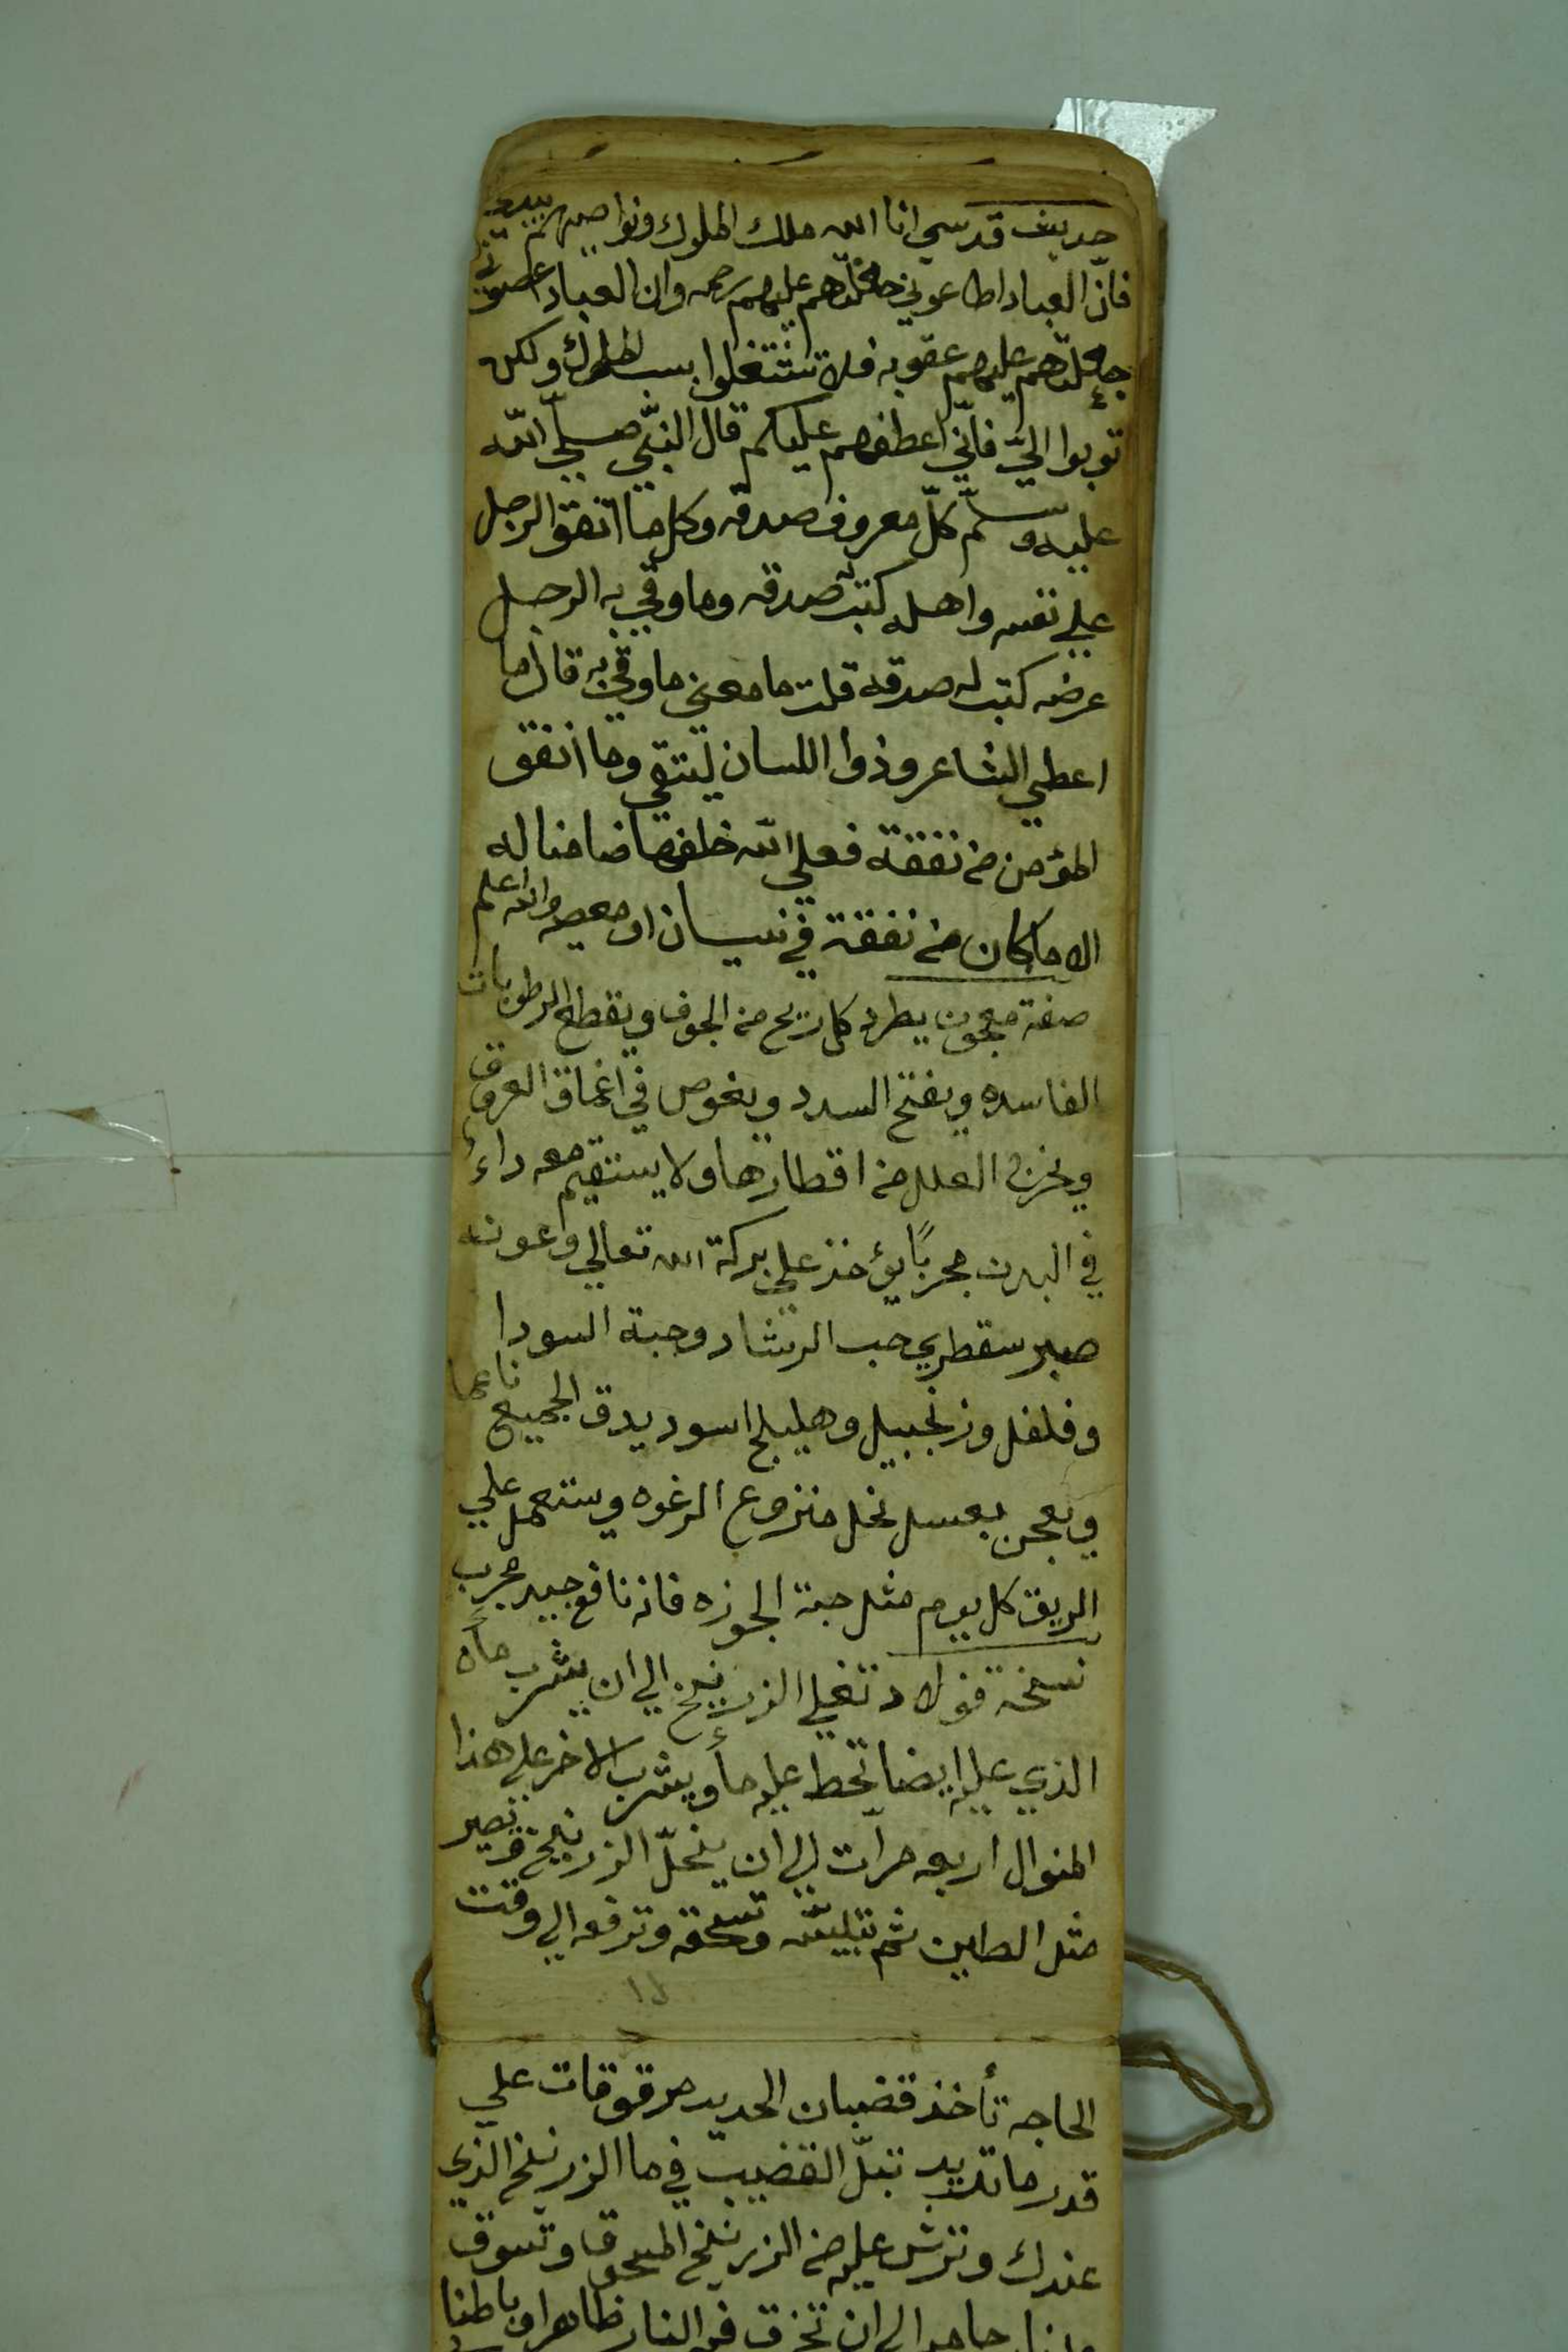 حديث قدسي انا الله ملك الملوك ونواصيهم بيدي
فانّ العباد اطاعوني جعلتهم عليهم رحمه وان العباد اعصوني
جعلتهم عليهم عقوبه فلا تشتغلوا بسب الملوك ولكن
توبوا اليّ فانّي اعطفهم عليكم قال النبّي صلّي الله
عليه وسلّم كلّ معروف صدقه وكل ما انفق الرجل
علي نفسه واهله كتب له صدقه وما وقي به الرجل
عرضه كتب له صدقه قلت ما معني ما وقي به قال ما
اعطي الشاعر وذوا اللسان ليتقي وما انفق
المؤمن من نفقة فعلي الله خلفها ضامنا له
الا ما كان من نفقة في نيسان او معصيه والله اعلم
صفة معجون يطرد كل ريح من الجوف ويقطع الرطوبات
الفاسده ويفتح السدد ويغوص في اغماق العروق
ويخرج العلل من اقطارها ولا يستقيم معه داءٌ
في البدن مجربًا يؤخذ علي بركة الله تعالي وعونه
صبر سقطري حب الرشاد وحبة السودا
وفلفل وزنجبيل وهليلج اسود يدق الجميع ناعما
ويعجن بعسل نحل منزوع الرغوه ويستعمل علي
الريق كل يوم مثل حبة الجوزه فانه نافع جيد مجرب
نسخة فولاد تغلي الزرنيخ الي ان يشرب ماه
الذي عليه ايضا تحط عليه ماء ويشرب الاخر علي هذا
المنوال اربعه مرّات الي ان ينحلّ الزرنيخ وتصير
مثل الطين ثم تيبسّه وتسحقه وترفعه الي وقت
الحاجه تأخذ قضبان الحديد مرقوقات علي
قدر ما تريد تبلّ القضيب في ما الزرنيخ الذي
عندك وترش عليه من الزرنيخ المسحوق وتسوق
الي ان تخرق في النار ظاهرا وباطنا